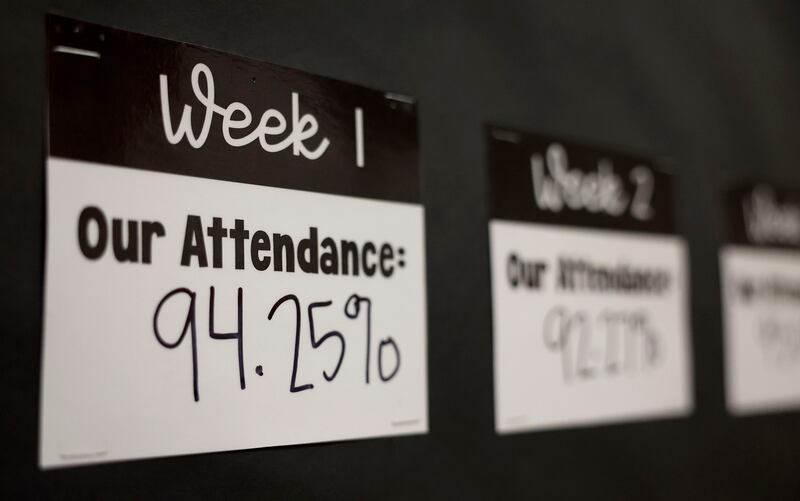 Week 1
Our Attendance:
94.25%
Week 2
Our Attendance:
92.27%
Week